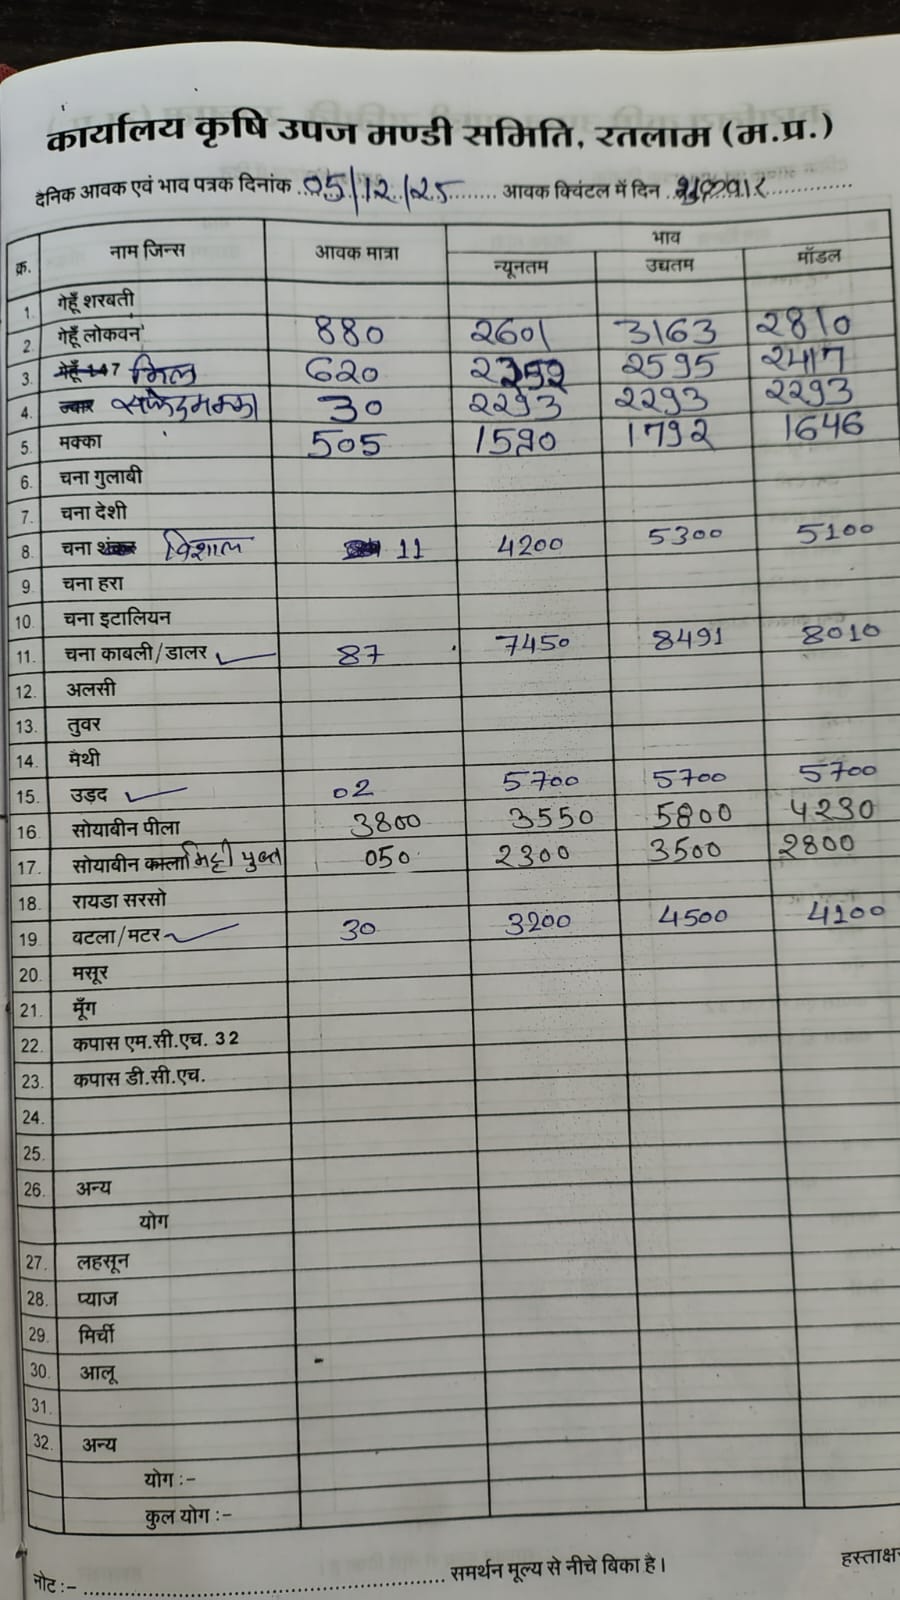 कार्यालय कृषि उपज मण्डी समिति, रतलाम (म.प्र.)
दैनिक आवक एवं भाव पत्रक दिनांक 05/12/25 आवक क्विंटल में दिन शुक्रवार
क्र. नाम जिन्स आवक मात्रा भाव
न्यूनतम उच्चतम मॉडल
1. गेहूँ शरबती
2. गेहूँ लोकवन 880 2601 3163 2810
3. गेहूँ 147 मिल 620 2595 2417
4. ज्वार सफेद मक्का 30 2293 2293 2293
5. मक्का 505 1520 1792 1646
6. चना गुलाबी
7. चना देशी
8. चना शंकर विशाल 11 4200 5300 5100
9. चना हरा
10. चना इटालियन
11. चना काबली/डालर 87 7450 8491 8010
12. अलसी
13. तुवर
14. मैथी
15. उड़द 02 5700 5700 5700
16. सोयाबीन पीला 3800 3550 5800 4230
17. सोयाबीन काला मिट्टी युक्त 050 2300 3500 2800
18. रायडा सरसो
19. बटला/मटर 30 3200 4500 4100
20. मसूर
21. मूँग
22. कपास एम.सी.एच. 32
23. कपास डी.सी.एच.
24.
25.
26. अन्य
योग
27. लहसून
28. प्याज
29. मिर्ची
30. आलू
31.
32. अन्य
योग :-
कुल योग :-
नोट :- समर्थन मूल्य से नीचे बिका है।